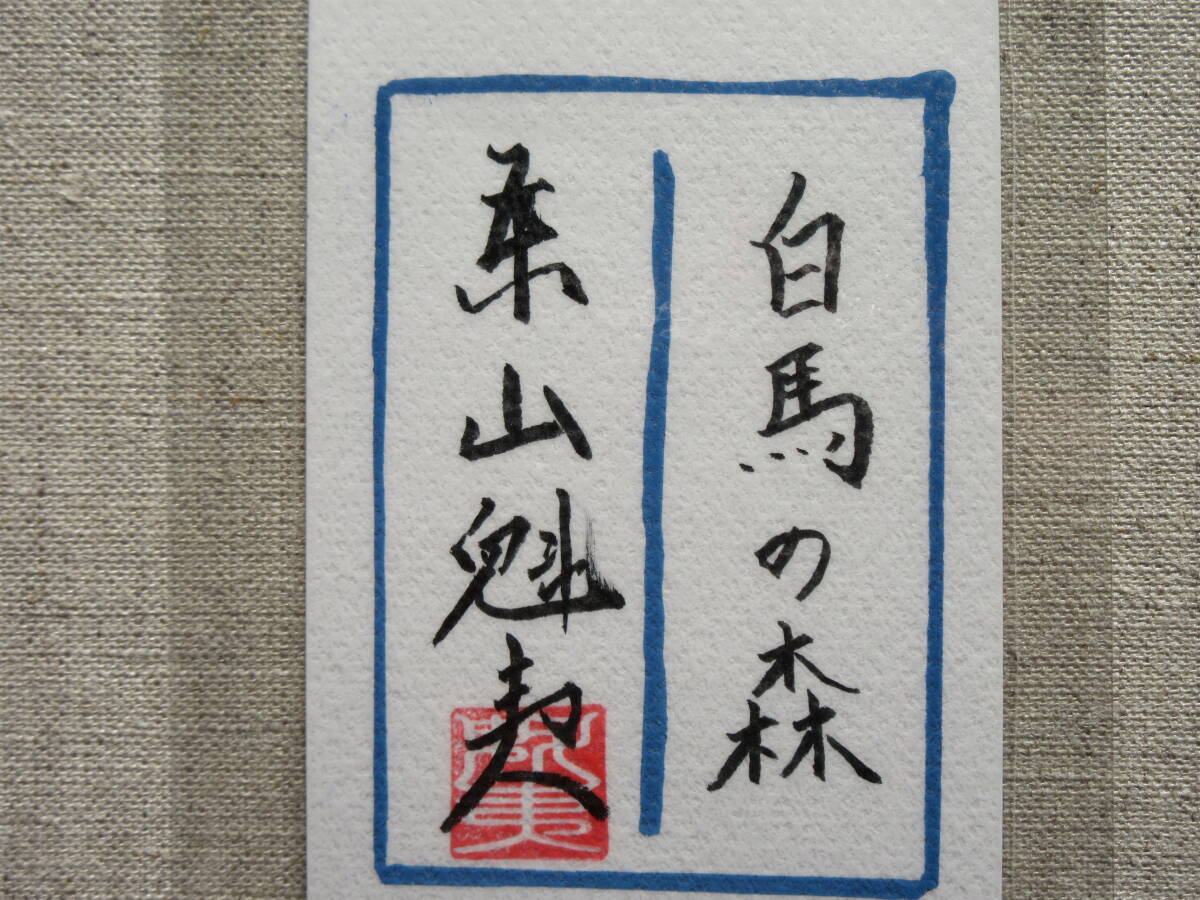 白馬の森
東山魁夷